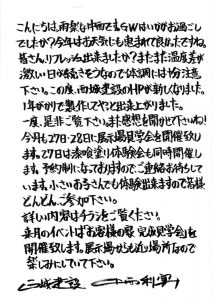 こんにちは、雨祭な中西です。GWはいかがお過ごし
でしたか?今年はお天気にも恵まれて良かったですね。
皆さん、リフレッシュ出来ましたか?まだまだ温度差が
激しい日が続きそうなので体調には十分注意
下さい。この度、西城建設のHPが新しくなりました。
1年がかりで製作してやっと出来上がりました。
一度、是非ご覧下さい。また感想も聞かせて下さいね!
今月も27日・28日に展示場見学会を開催致し
ます。27日は漆喰塗り体験会も同時開催し
ます。予約制になっておりますので、ご連絡お待ちして
います。小さいお子さんでも体験出来ますので皆様
どんどん、ご参加下さい。
詳しい内容はチラシをご覧ください。
来月のイベントはお客様の家 完成見学会を
開催致します。展示場からも近い場所なので
楽しみにしていて下さい。